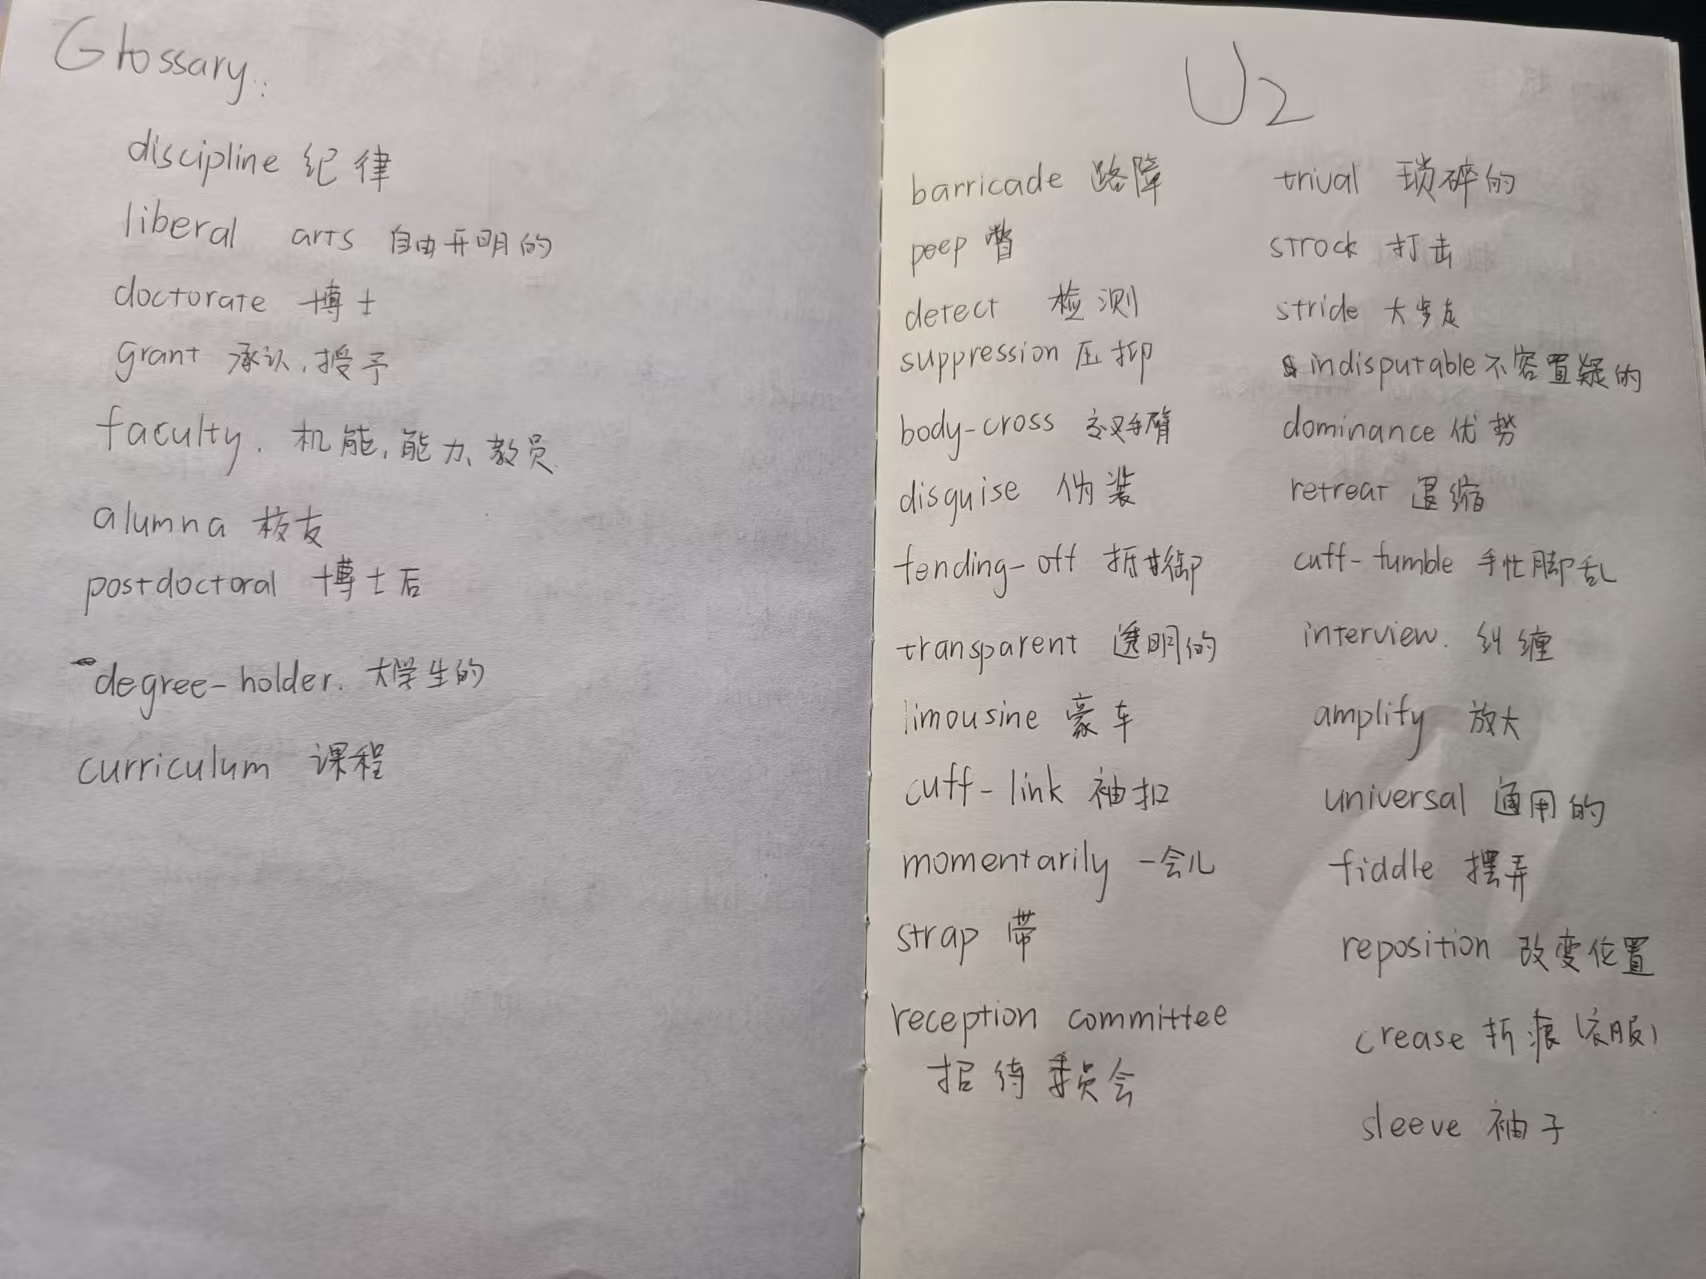 Glossary:
discipline 纪律
liberal arts 自由开明的
doctorate 博士
grant 承认,授予
faculty. 机能,能力,教员
alumna 校友
postdoctoral 博士后
degree-holder. 大学生的
curriculum 课程
U2
barricade 路障
peep 瞥
detect 检测
suppression 压抑
body-cross 交叉手臂
disguise 伪装
fending-off 抵御
transparent 透明的
limousine 豪车
cuff-link 袖扣
momentarily 一会儿
strap 带
reception committee
招待委员会
trival 琐碎的
strock 打击
stride 大步走
indisputable 不容置疑的
dominance 优势
retreat 退缩
cuff-fumble 手忙脚乱
interview. 纠缠
amplify 放大
universal 通用的
fiddle 摆弄
reposition 改变位置
crease 折痕(衣服)
sleeve 袖子